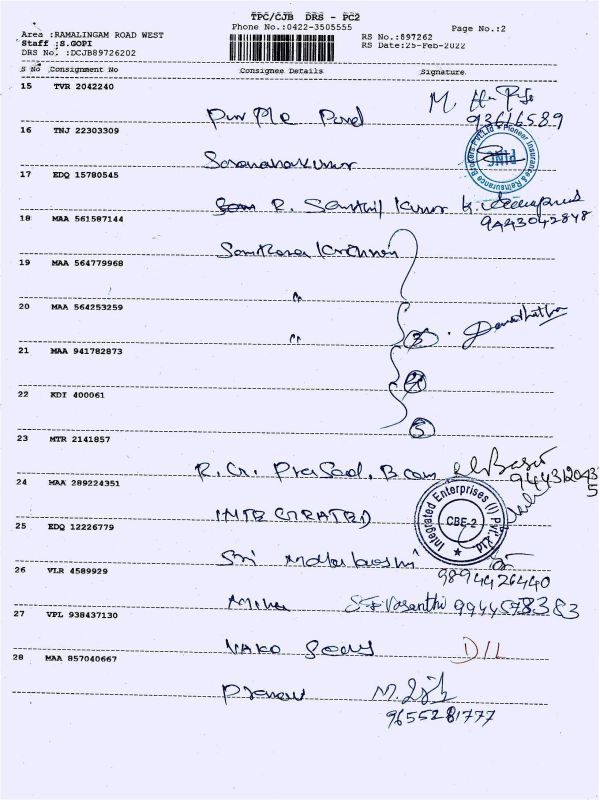 TPC/CJB DRS - PC2
Phone No.:0422-3505555
Page No.:2
Area :RAMALINGAM ROAD WEST
Staff :S.GOPI
DRS No. :DCJB89726202
RS No.:897262
RS Date:25-Feb-2022
S No Consignment No Consignee Details Signature
15 TVR 2042240
Purple Pond M
93616589
16 TNJ 22303309
Saravanakumar
Pioneer Insurance & Reinsurance Brokers Pvt Ltd
PINC
17 EDQ 15780545
R. Senthil Kumar K.
9443042848
18 MAA 561587144
Santhana Krishnan
19 MAA 564779968
"
20 MAA 564253259
" 3
21 MAA 941782873
22 KDI 400061
5
23 MTR 2141857
R.Cr. Prasad. B com
24 MAA 289224351
INTEGRATED
Integrated Enterprises (I) Pvt. Ltd
CBE-2
25 EDQ 12226779
Sri Mahalakshmi
9894426440
26 VLR 4589929
Vasanthi
27 VPL 938437130
D/L
28 MAA 857040667
9655281777